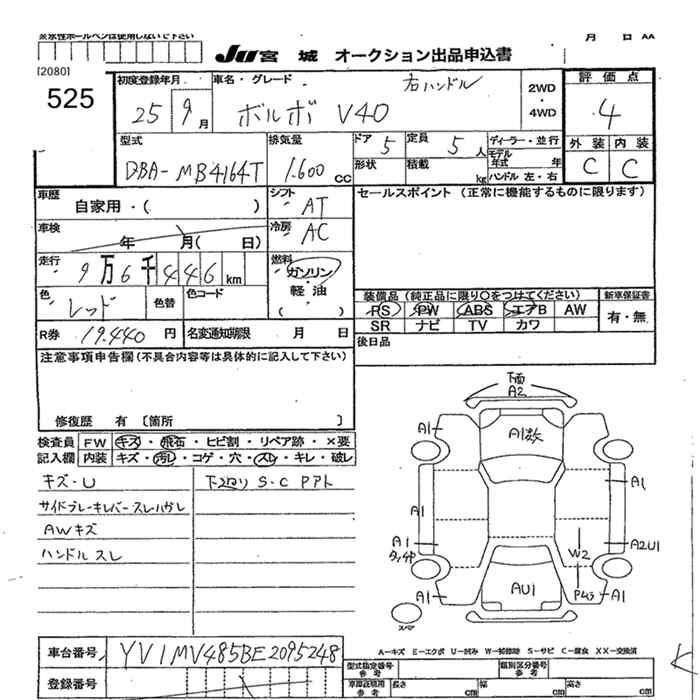 水性ボールペンは使用しないで下さい
月 日 AA
[2080]
JU宮城 オークション出品申込書
525
初度登録年月 車名・グレード 右ハンドル 2WD・4WD 評価点
25 9月 ボルボ V40 4
型式 排気量 ドア 5 定員 5人 ディーラー・並行 外装 内装
DBA-MB4164T 1.600cc 形状 積載 kg モデル年式 年 C C
ハンドル 左・右
車歴 自家用・( ) シフト AT セールスポイント(正常に機能するものに限ります)
車検 年 月( 日) 冷房 AC
走行 9万6千446km 燃料 ガソリン・軽・油 ( )
色 レッド 色替 色コード
装備品(純正品に限り○をつけてください) 新車保証書
RS PW ABS エアB AW 有・無
SR ナビ TV カワ
R券 19.440円 名変通知期限 月 日
後日品
注意事項申告欄(不具合内容等は具体的に記入して下さい)
修復歴 有〔箇所 〕
検査員記入欄 FW キズ・飛石・ヒビ割・リペア跡・×要
内装 キズ・汚レ・コゲ・穴・スレ・キレ・破レ
キズ・U
サイドブレーキレバースレハガレ
AWキズ
ハンドルスレ
下廻り S・C Pアト
下面
A2
A1
A1数
A1
A1
A1
A1
A2U1
W2
A1
AU1
P43
A1
スペア
A-キズ E-エクボ U-凹み W-補修跡 S-サビ C-腐食 XX-交換済
車台番号 YV1MV485BE2095248
登録番号
型式指定番号 参考 類別区分番号 参考
車庫証明用 参考 長さ cm 幅 cm 高さ cm